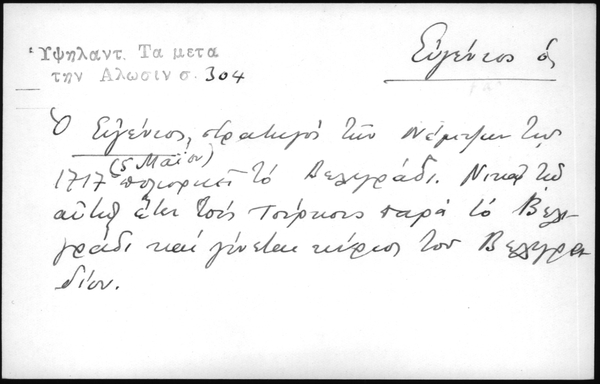 Ὑψηλαντ. Τα μετα
την Αλωσιν σ. 304
Εὐγένιος ὁ
Ὁ Εὐγένιος, στρατηγός τῶν Νέμτζων τῷ
(5 Μαΐου)
1717 πολιορκεῖ τό Βελιγράδι. Νικᾷ τῷ
αὐτῷ ἔτει τούς Τούρκους παρά τό Βελι
γράδι καί γίνεται κύριος τοῦ Βελιγρα
δίου.